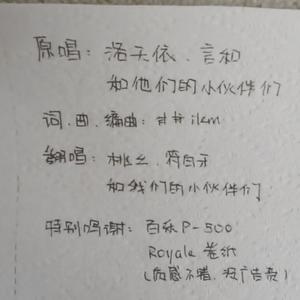 原唱：洛天依、言和
和他们的小伙伴们
词、曲、编曲：井井ilem
翻唱：桃丝、符白牙
和我们的小伙伴们
特别鸣谢：百乐P-500
Royale 卷纸
(质感不错，没广告费)